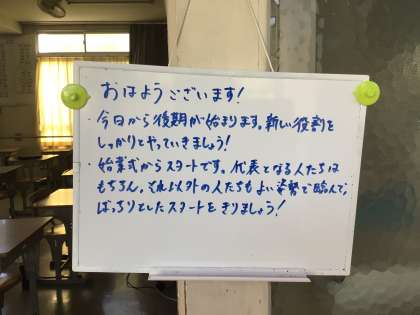 おはようございます!
・今日から後期が始まります。新しい役割を
しっかりとやっていきましょう!
・始業式からスタートです。代表となる人たちは
もちろん、それ以外の人たちもよい姿勢で臨んで、
ばっちりとしたスタートをきりましょう!